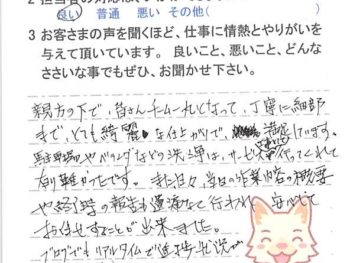 良い 普通 悪い その他(
3 お客さまの声を聞くほど、仕事に情熱とやりがいを
与えて頂いています。 良いこと、悪いこと、どんな
ささいな事でもぜひ、お聞かせ下さい。
親方の下で、皆さんチームーれとなって、丁寧に細部
まで、とても綺麗な仕上がりで、満足しています。
駐車場やベランダなどの洗浄は、サービスで行ってくれて
有難かったです。また日々、当日の作業内容の概要
や経過時の報告も適宜行われ、安心して
お任せすることが出来ました。
ブログでもリアルタイムで進捗状況が